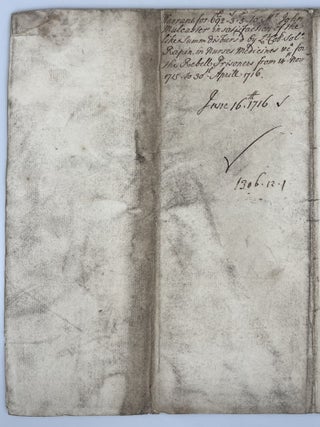 Warrant for 692-3-5 to Mr John
Mulcaster in satisfaction of the
like Summ disburs'd by Lt Col Sol:
Rapin in Nurses Medicines &c for
the Rebells Prisoners from 14 Nov
1715 to 30th Aprill 1716
June 16th 1716
1306.12.1